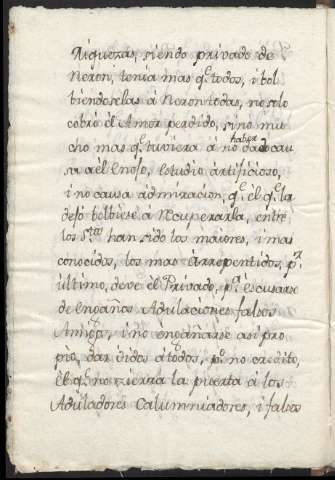 Riquezas, siendo privado de
Neron, tenia mas q.e todos, i bol
biendoselas à Neron todas, no solo
cobró el Amor perdido, sino mu
cho mas q.e tuviera à no haber dado cau
sa a el Enojo, estudio àrtificioso,
i no causa admiracion, q.e el q.e la
dejó bolbiese à Recuperarla, entre
los S.tos han sido los maiores, i mas
conocidos, los mas àrrepentidos, p.r
último, deve el Privado, p.a escusarse
de engaños Adulaciones falsos
Amigos, i no engañarse asi pro
pio, dar oidos à todos, p.o no credito,
el q.e no zierra la puerta à los
Aduladores Calumniadores, i falsos